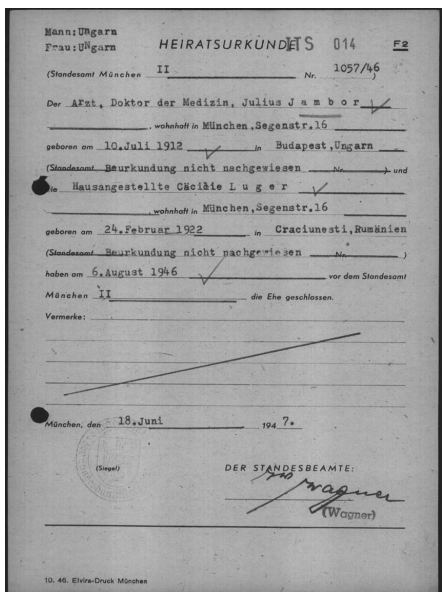 Mann:Ungarn
Frau:Ungarn
HEIRATSURKUNDE ITS 014 F2
(Standesamt München II Nr. 1057/46)
Der Arzt, Doktor der Medizin, Julius J a m b o r
, wohnhaft in München, Segenstr.16
geboren am 10.Juli 1912 in Budapest,Ungarn
(Standesamt Beurkundung nicht nachgewiesen Nr. ) und
die Hausangestellte Cäcilie L u g e r
, wohnhaft in München, Segenstr.16
geboren am 24.Februar 1922 in Craciunesti,Rumänien
(Standesamt Beurkundung nicht nachgewiesen Nr. )
haben am 6.August 1946 vor dem Standesamt
München II die Ehe geschlossen.
Vermerke:
München, den 18.Juni 1947.
(Siegel)
DER STANDESBEAMTE:
Wagner
(Wagner)
10. 46. Elvira-Druck München